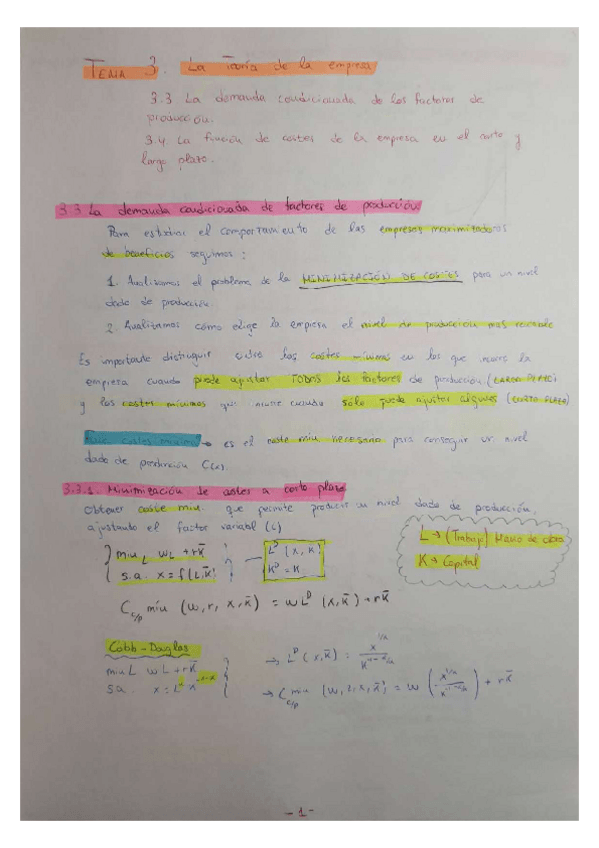 TEMA 3. La Teoría de la empresa
3.3 La demanda condicionada de los factores de
producción.
3.4. La función de costes de la empresa en el corto y
largo plazo.
3.3 La demanda condicionada de factores de producción
Para estudiar el comportamiento de las empresas maximizadoras
de beneficios seguimos:
1. Analizamos el problema de la MINIMIZACIÓN DE COSTES para un nivel
dado de producción.
2. Analizamos cómo elige la empresa el nivel de producción más rentable
Es importante distinguir entre los costes mínimos en los que incurre la
empresa cuando puede ajustar TODOS los factores de producción (LARGO PLAZO)
y los costes mínimos que incurre cuando solo puede ajustar algunos (CORTO PLAZO)
costes → es el coste min necesario para conseguir un nivel
dado de producción C(x).
3.3.1. Minimización de costes a corto plazo
Obtener coste min. que permite producir un nivel dado de producción,
ajustando el factor variable (L)
L → (Trabajo) Mano de obra
K → Capital
min L wL + rK̄
s.a. x = f(L, K̄)
Lᴰ (x, K̄)
Kᴰ = K̄
C c/p min (w, r, x, K̄) = w Lᴰ (x, K̄) + rK̄
Cobb-Douglas
min L wL + rK̄
s.a.
→ Lᴰ (x, K̄) =
→ C c/p min (w, r, x, K̄) = w + rK̄
- 1 -